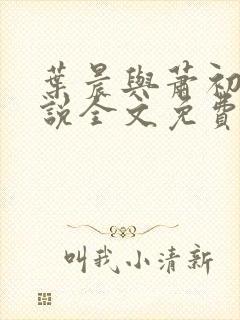 葉晨與蕭初
說全文免費
叫我小清新